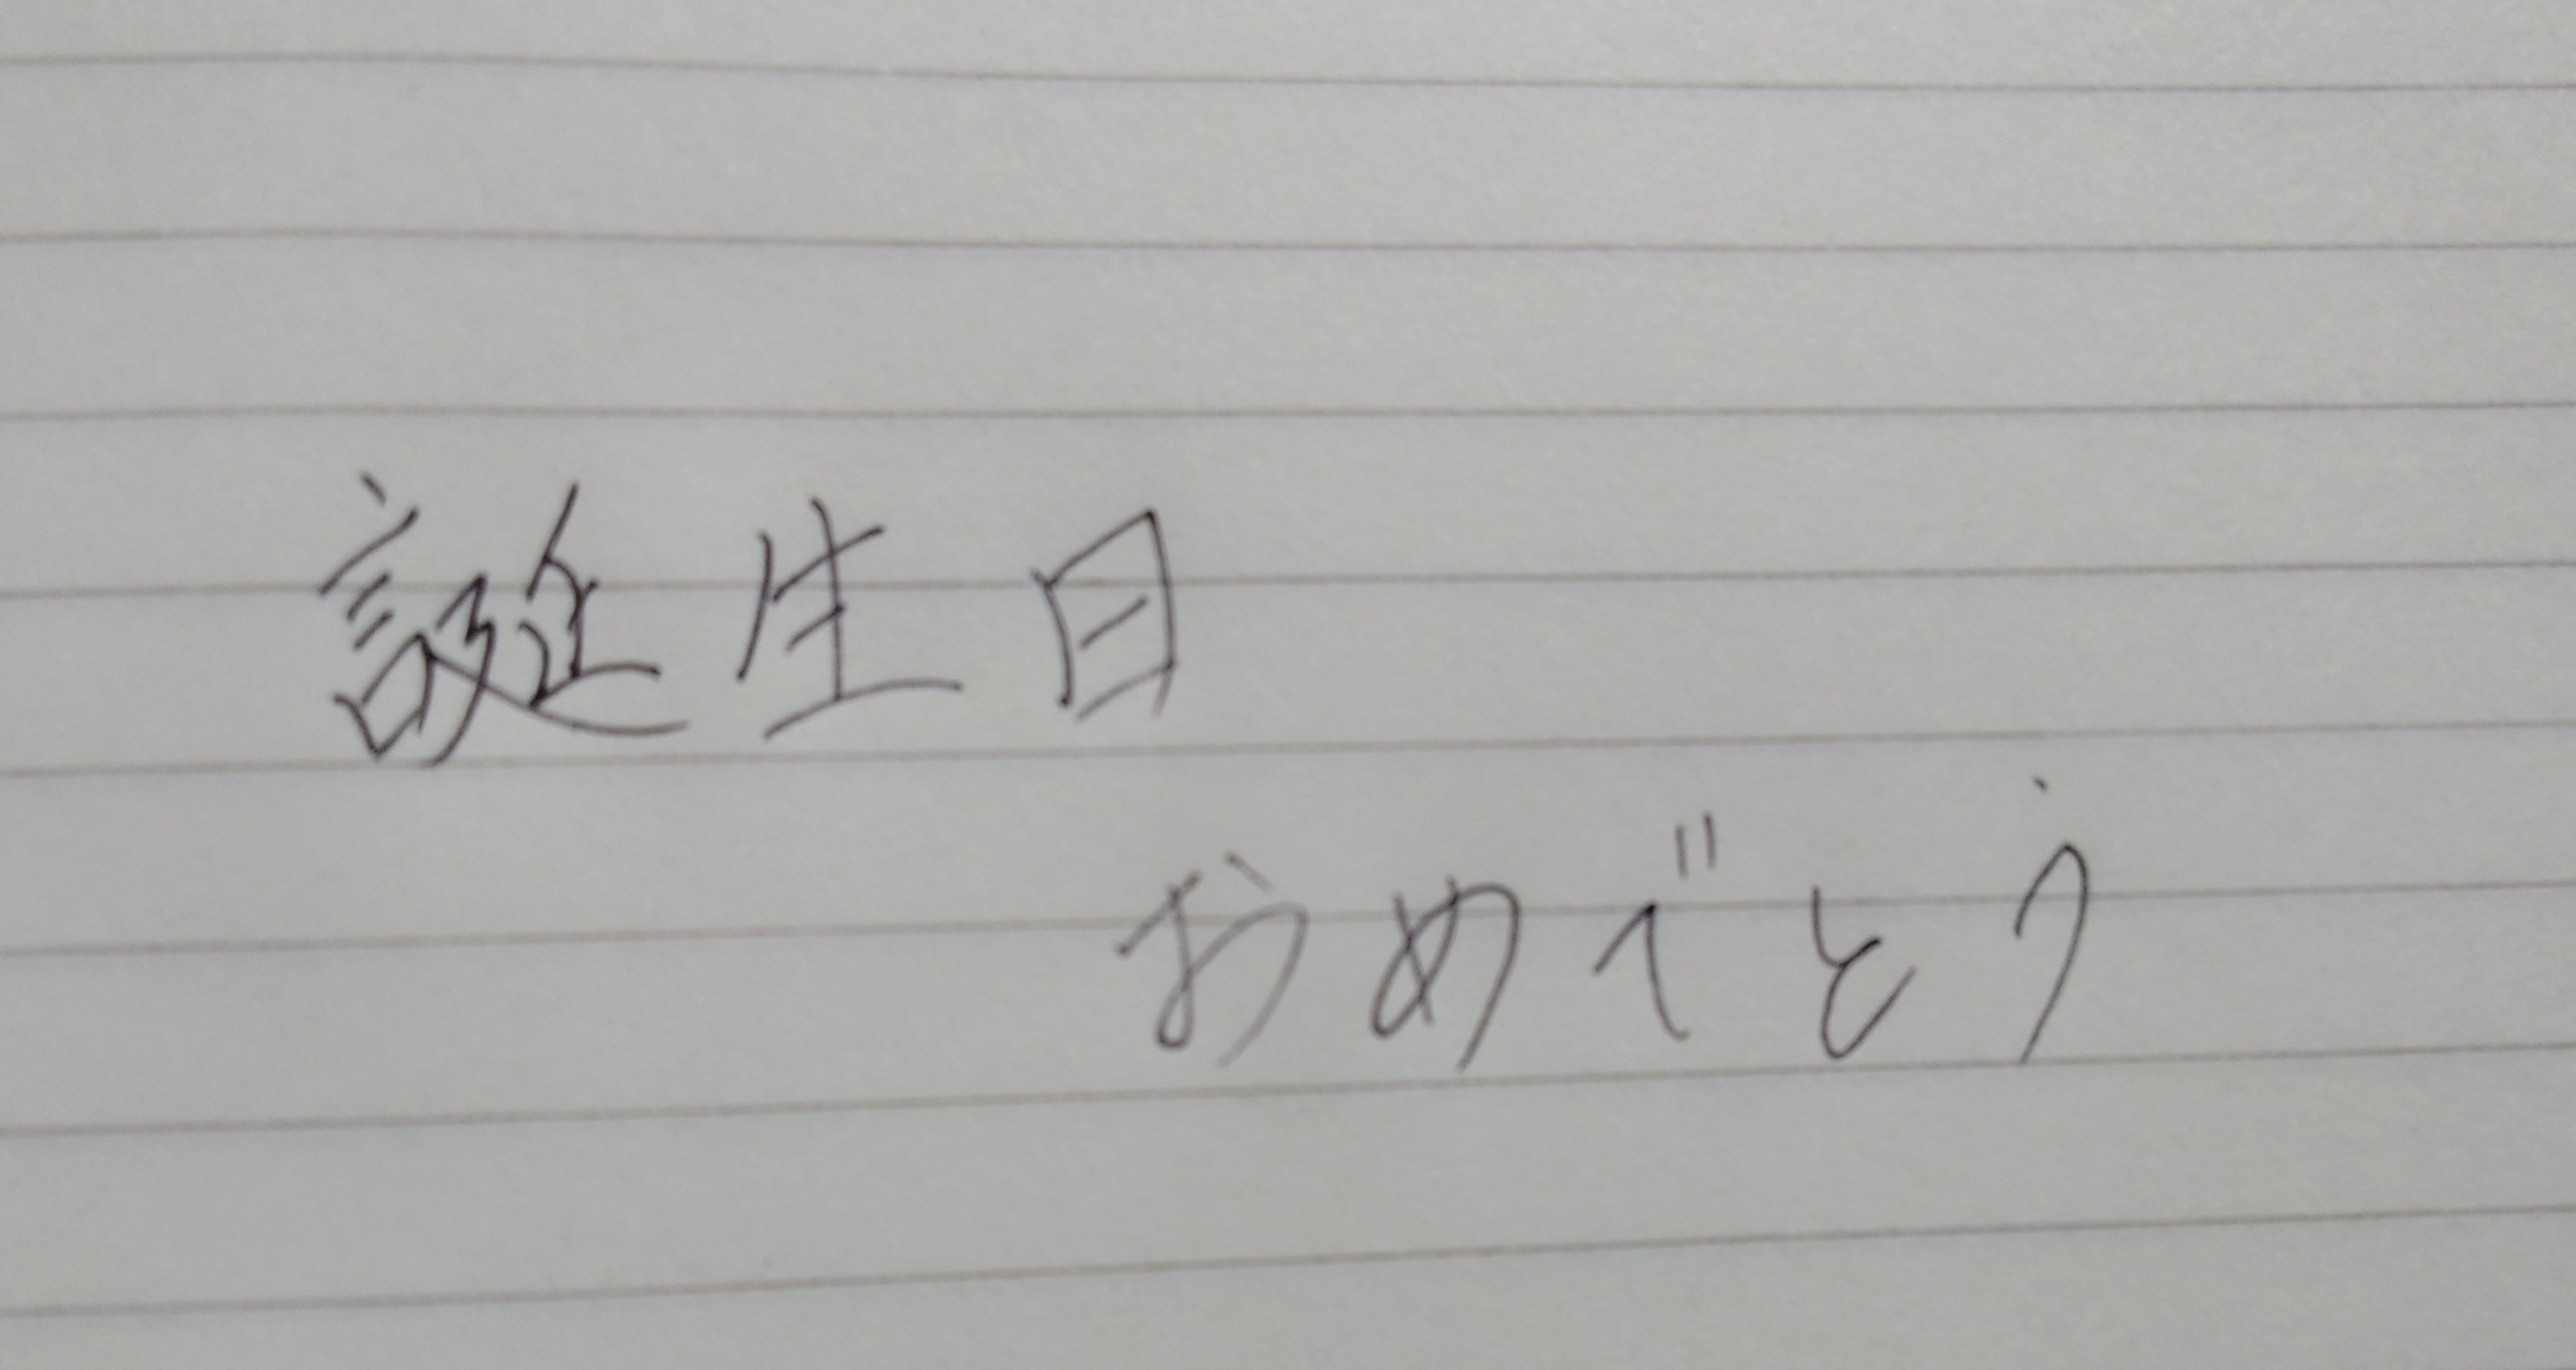 誕生日
おめでとう